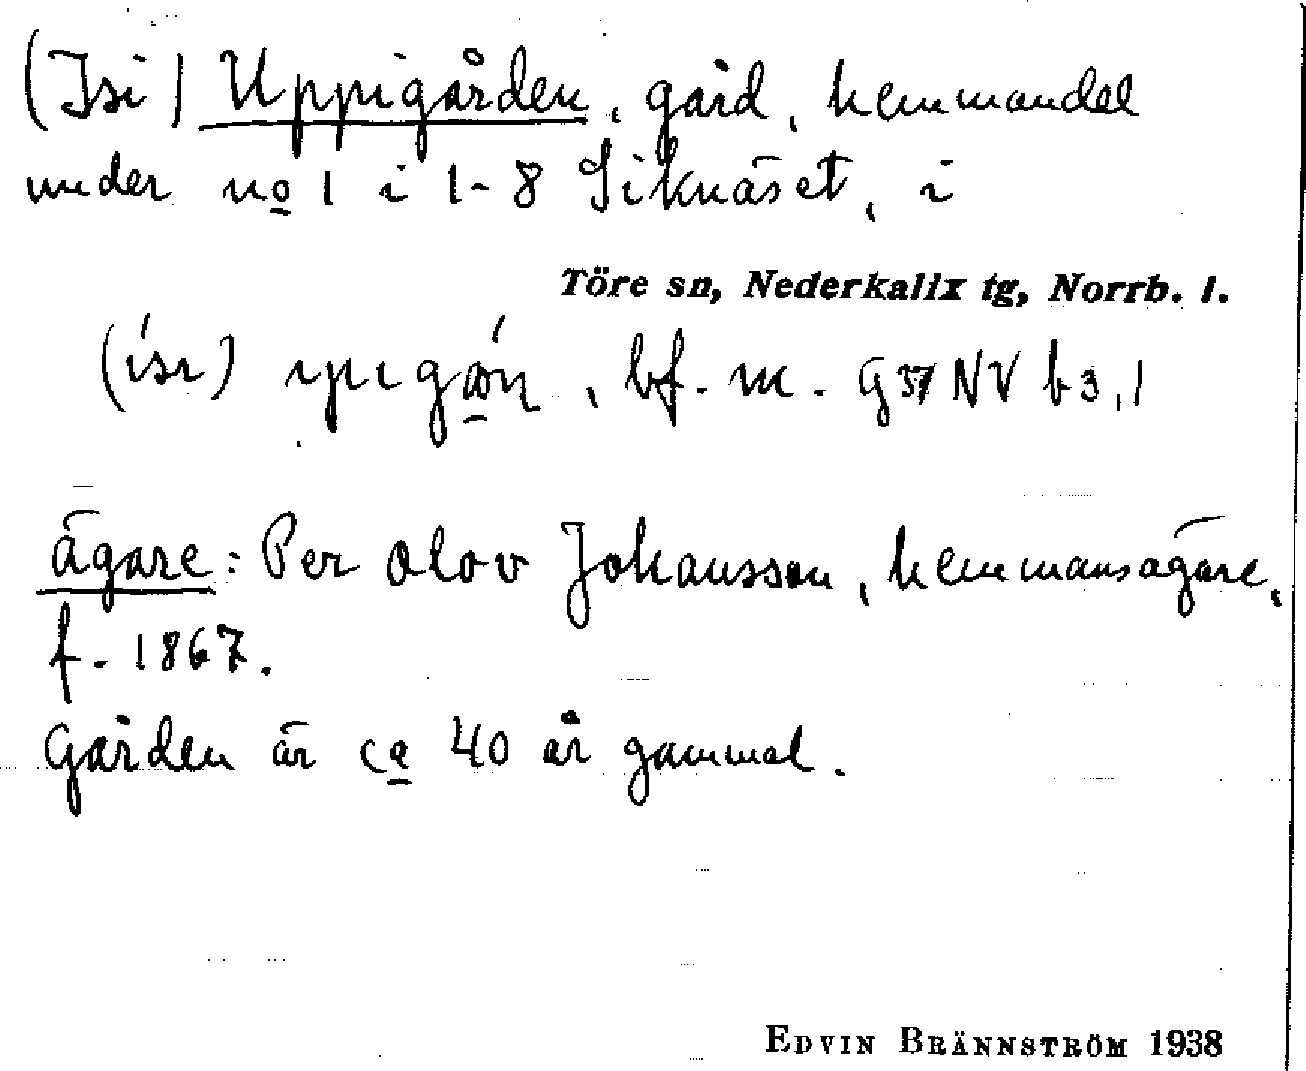 (Isi) Uppigården, gård, hemmandel
under no 1 i 1-8 Siknäset, i
Töre sn, Nederkalix tg, Norrb. l.
bf. m. G37 NV b3,1
ägare: Per Olov Johansson, hemmansägare,
f. 1867.
Gården är ca 40 år gammal.
EDVIN BRÄNNSTRÖM 1938